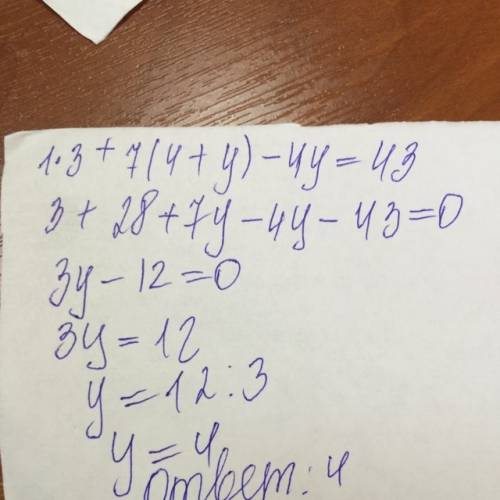 1·3+7(4+y)-4y=43
3+28+7y-4y-43=0
3y-12=0
3y=12
y=12:3
y=4
ответ: 4